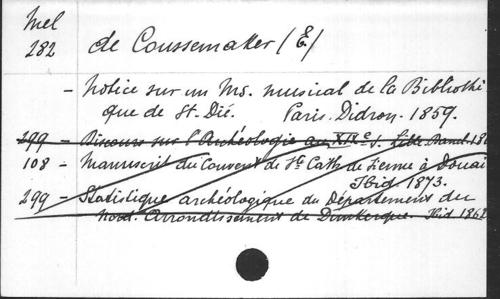 Mel
282 de Coussemaker (E.)
- Notice sur un Ms. musical de la Bibliothè
que de St. Dié. Paris. Didron. 1859.
299 - Discours sur l'Archéologie au XIXe s. Lille. Danel. 186
108 - Manuscrit du Couvent de Ste Cath. de Sienne à Douai
Ibid. 1873.
299 - Statistique archéologique du Département du
Nord. Arrondissement de Dunkerque. Ibid 1862